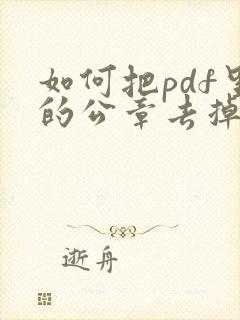 如何把pdf里
的公章去掉
逝舟